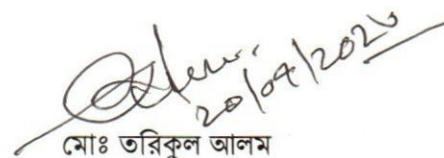 20/04/2020
মোঃ তরিকুল আলম